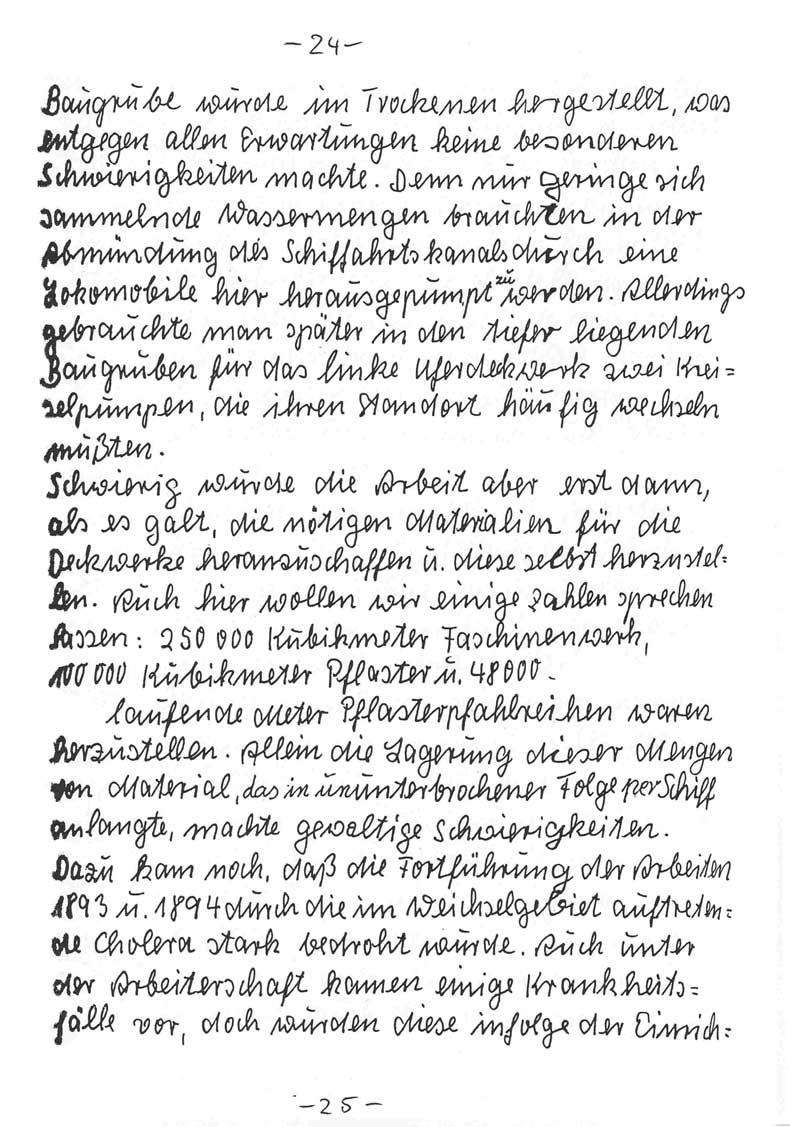 -24-
Baugrube wurde im Trockenen hergestellt, was
entgegen allen Erwartungen keine besonderen
Schwierigkeiten machte. Denn nur geringe sich
sammelnde Wassermengen brauchten in der
Abmündung des Schiffahrtskanals durch eine
Lokomobile hier herausgepumpt zu werden. Allerdings
gebrauchte man später in den tiefer liegenden
Baugruben für das linke Uferdeckwerk zwei Krei=
selpumpen, die ihren Standort häufig wechseln
mußten.
Schwierig wurde die Arbeit aber erst dann,
als es galt, die nötigen Materialien für die
Deckwerke heranzuschaffen u. diese selbst herzustel=
len. Auch hier wollen wir einige Zahlen sprechen
lassen: 250 000 Kubikmeter Faschinenwerk,
100 000 Kubikmeter Pflaster u. 48000.
laufende Meter Pflasterpfahlreihen waren
herzustellen. Allein die Lagerung dieser Mengen
von Material, das in ununterbrochener Folge per Schiff
anlangte, machte gewaltige Schwierigkeiten.
Dazu kam noch, daß die Fortführung der Arbeiten
1893 u. 1894 durch die im Weichselgebiet auftreten=
de Cholera stark bedroht wurde. Auch unter
der Arbeiterschaft kamen einige Krankheits=
fälle vor, doch wurden diese infolge der Einrich=
-25-